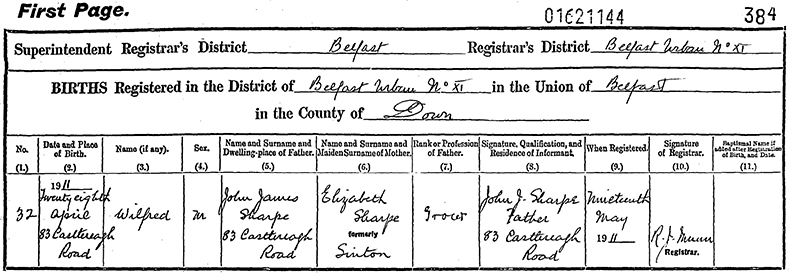 First Page. 01621144 384
Superintendent Registrar's District Belfast Registrar's District Belfast Urban No XI
BIRTHS Registered in the District of Belfast Urban No XI in the Union of Belfast
in the County of Down
No. Date and Place of Birth. Name (if any). Sex. Name and Surname and Dwelling-place of Father. Name and Surname and Maiden Surname of Mother. Rank or Profession of Father. Signature, Qualification, and Residence of Informant. When Registered. Signature of Registrar. Baptismal Name if added after Registration of Birth, and Date.
(1.) (2.) (3.) (4.) (5.) (6.) (7.) (8.) (9.) (10.) (11.)
32
1911
Twenty eighth
April
83 Castlereagh
Road
Wilfred
M
John James
Sharpe
83 Castlereagh
Road
Elizabeth
Sharpe
formerly
Sinton
Grocer
John J. Sharpe
Father
83 Castlereagh
Road
Nineteenth
May
1911
Registrar.